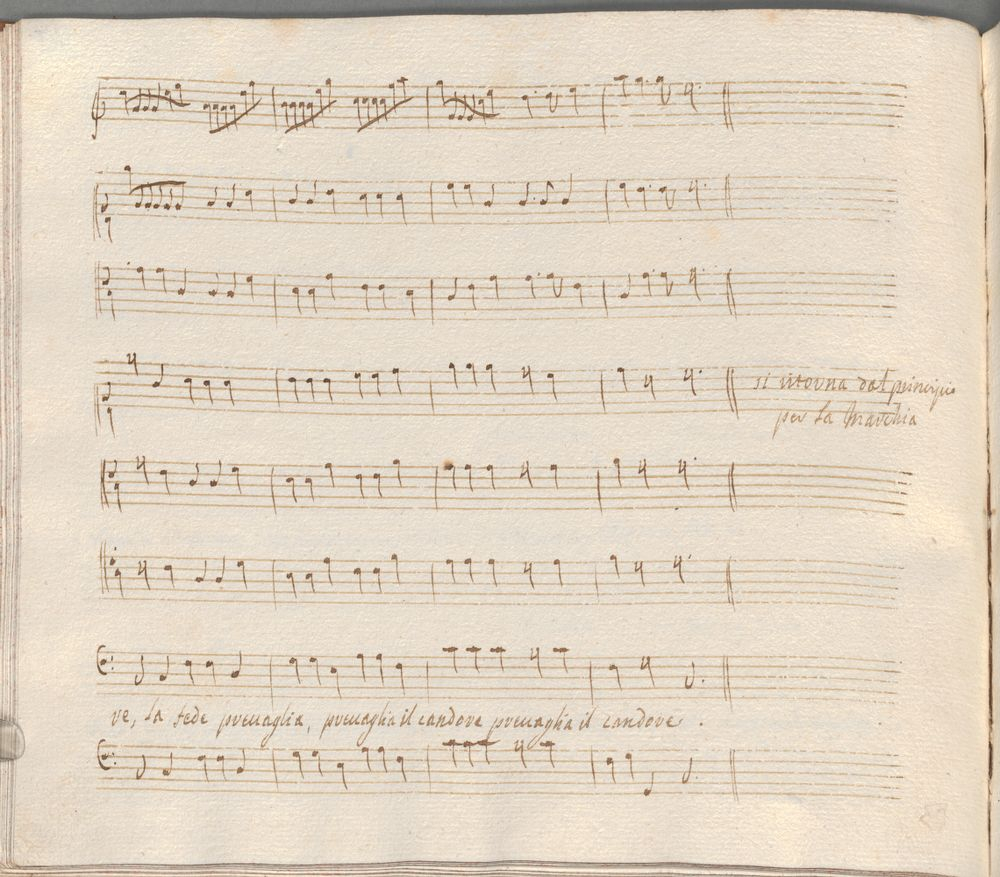 si ritorna dal principio
per la Marchia
re, la fede preuaglia, preuaglia il candore preuaglia il candore.